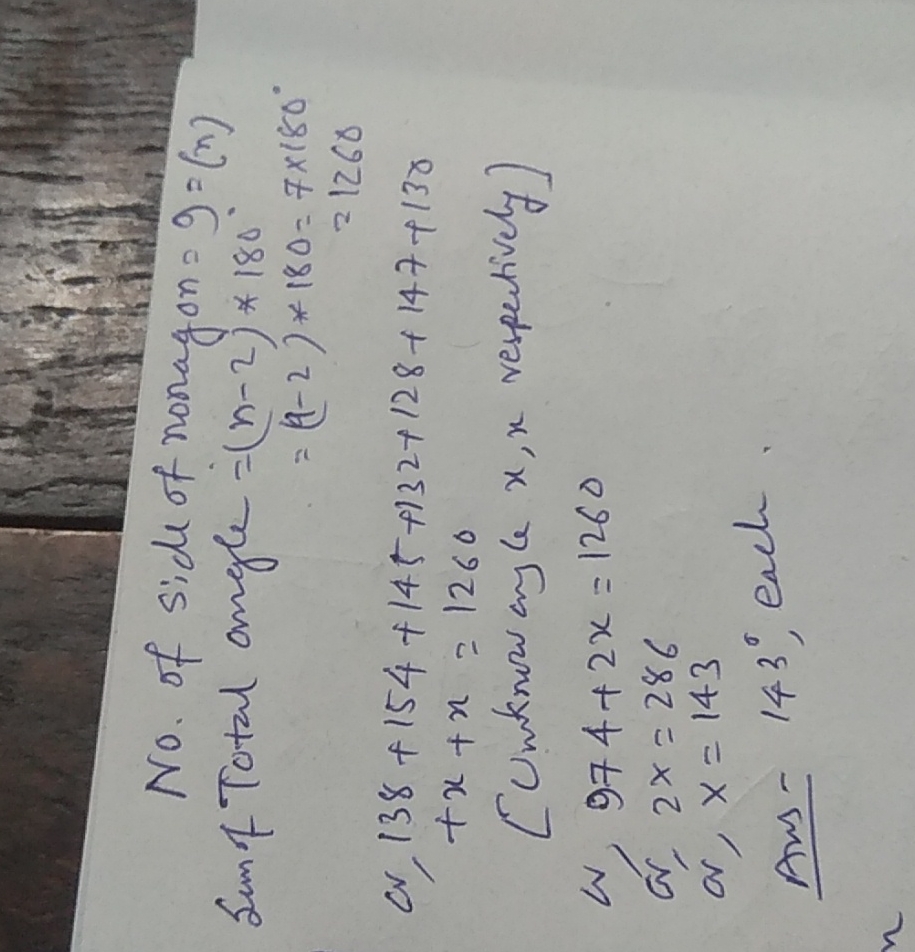 No. of side of nonagon = 9 = (n)
Sum of Total angle = (n-2) * 180°
= (9-2) * 180 = 7 x 180°
= 1260
or, 138 + 154 + 145 + 132 + 128 + 147 + 130
+ x + x = 1260
[Unknow angle x, x respectively]
or, 974 + 2x = 1260
or, 2x = 286
or, x = 143
Ans - 143°, each.
n